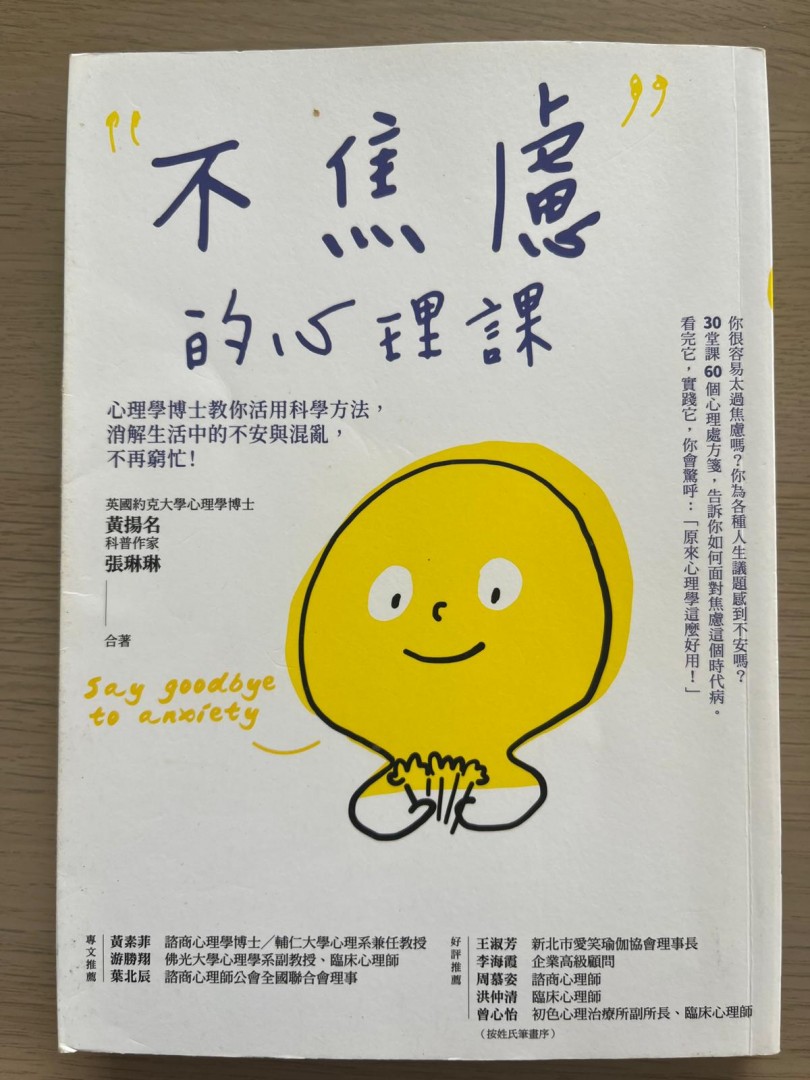 “不焦慮”
的心理課
心理學博士教你活用科學方法，
消解生活中的不安與混亂，
不再窮忙！
英國約克大學心理學博士
黃揚名
科普作家
張琳琳
合著
你很容易太過焦慮嗎？你為各種人生議題感到不安嗎？
30堂課60個心理處方箋，告訴你如何面對焦慮這個時代病。
看完它，實踐它，你會驚呼：「原來心理學這麼好用！」
say goodbye
to anxiety
專文推薦
黃素菲 諮商心理學博士／輔仁大學心理系兼任教授
游勝翔 佛光大學心理學系副教授、臨床心理師
葉北辰 諮商心理師公會全國聯合會理事
好評推薦
王淑芳 新北市愛笑瑜伽協會理事長
李海霞 企業高級顧問
周慕姿 諮商心理師
洪仲清 臨床心理師
曾心怡 初色心理治療所副所長、臨床心理師
（按姓氏筆畫序）